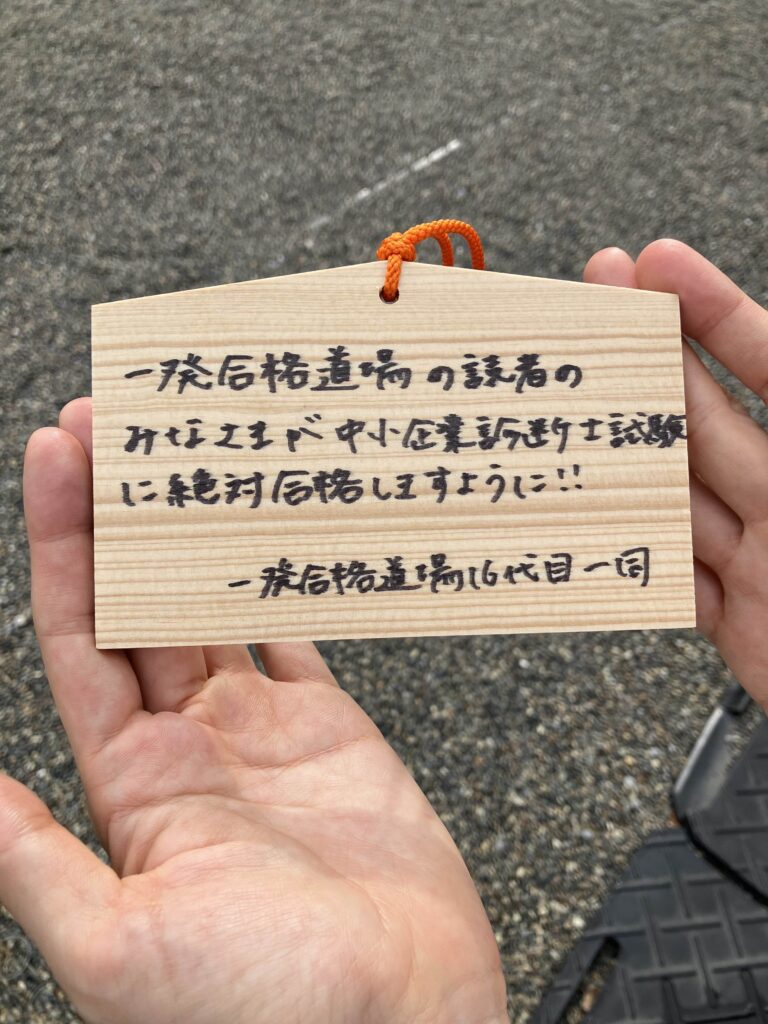 一発合格道場の読者の
みなさまが中小企業診断士試験
に絶対合格しますように!!
一発合格道場16代目一同